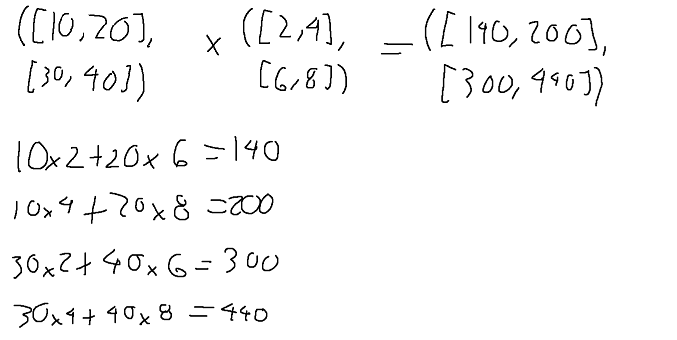 ([10,20], × ([2,4], = ([140,200],
[30,40]) [6,8]) [300,440])
10x2+20x6=140
10x4+20x8=200
30x2+40x6=300
30x4+40x8=440